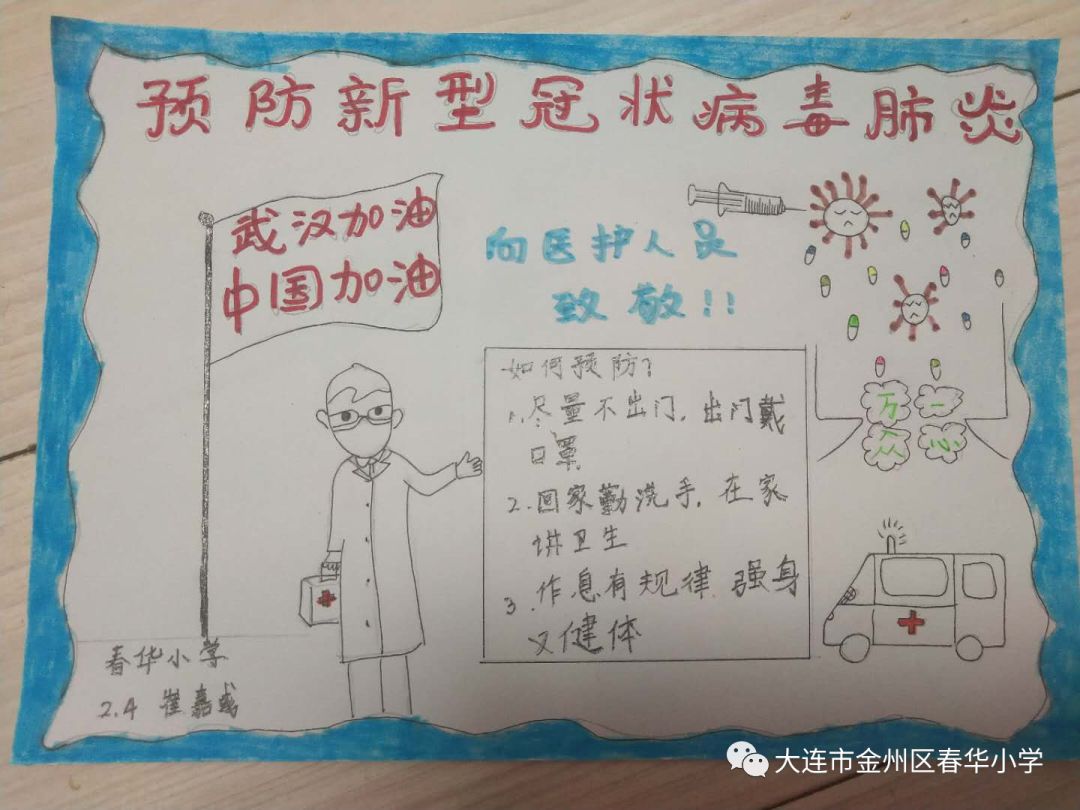 预防新型冠状病毒肺炎
武汉加油
中国加油
向医护人员
致敬!!
如何预防?
1.尽量不出门,出门戴
口罩
2.回家勤洗手,在家
讲卫生
3.作息有规律 强身
又健体
万一
众心
春华小学
2.4 崔嘉彧
大连市金州区春华小学